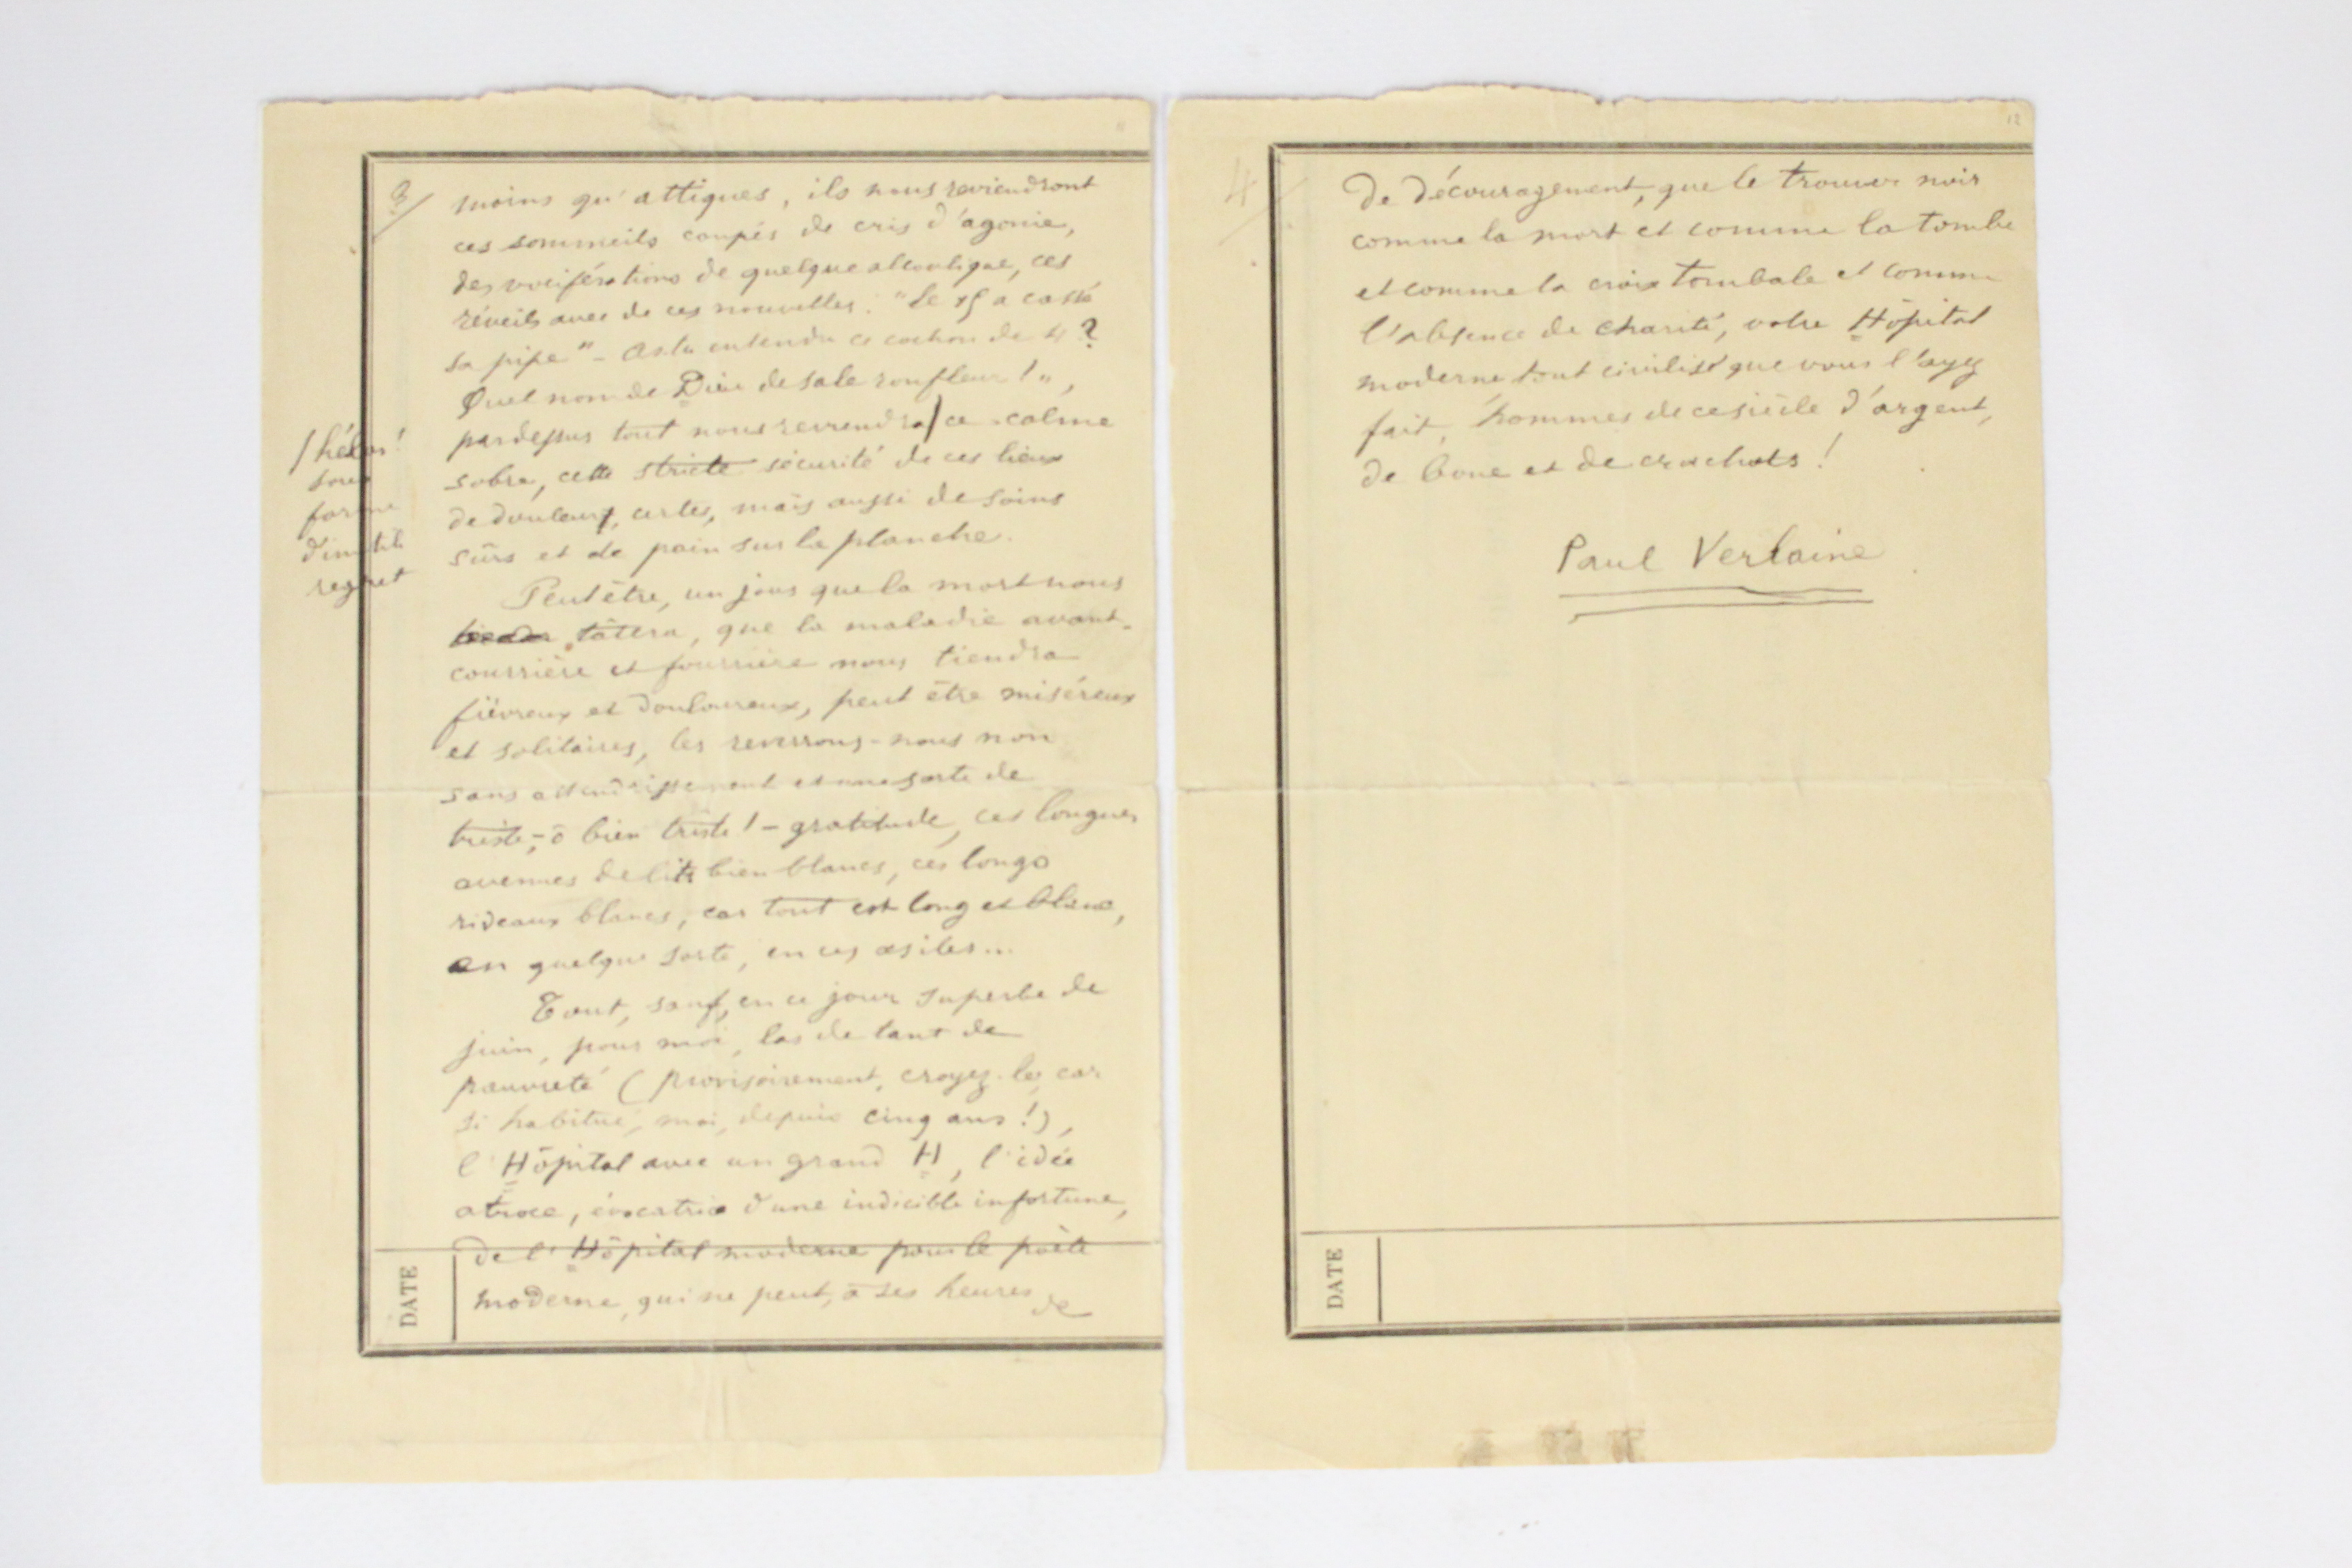 3/
moins qu'attiques, ils nous reviendront
ces sommeils coupés de cris d'agonie,
des vociférations de quelque alcoolique, ces
réveils avec de ces nouvelles : "Le 15 a cassé
sa pipe" – As tu entendu ce cochon de 4 ?
Quel nom de Dieu de sale ronfleur !",
pardessus tout nous reviendra/ce calme
/hélas !
sous
forme
d'inutile
regret
sobre, cette stricte sécurité de ces lieux
de douleurs, certes, mais aussi de soins
sûrs et de pain sur la planche.
Peut être, un jour que la mort nous
tâtera, que la maladie avant-
courrière et fourrière nous tiendra
fiévreux et douloureux, peut être miséreux
et solitaires, les reverrons-nous non
sans attendrissement et une sorte de
triste, – ô bien triste ! – gratitude, ces longues
avenues de lits bien blancs, ces longs
rideaux blancs, car tout est long et blanc,
en quelque sorte, en ces asiles...
Tout, sauf, en ce jour superbe de
juin, pour moi, las de tant de
pauvreté (provisoirement, croyez-le, car
si habitué, moi, depuis cinq ans !),
l'Hôpital avec un grand H, l'idée
atroce, évocatrice d'une indicible infortune,
de l'Hôpital moderne pour le poète
moderne, qui ne peut, à ses heures de
DATE
12
4/
de découragement, que le trouver noir
comme la mort et comme la tombe
et comme la croix tombale et comme
l'absence de charité, votre Hôpital
moderne tout civilisé que vous l'ayez
fait, hommes de ce siècle d'argent,
de boue et de crachats !
Paul Verlaine
DATE